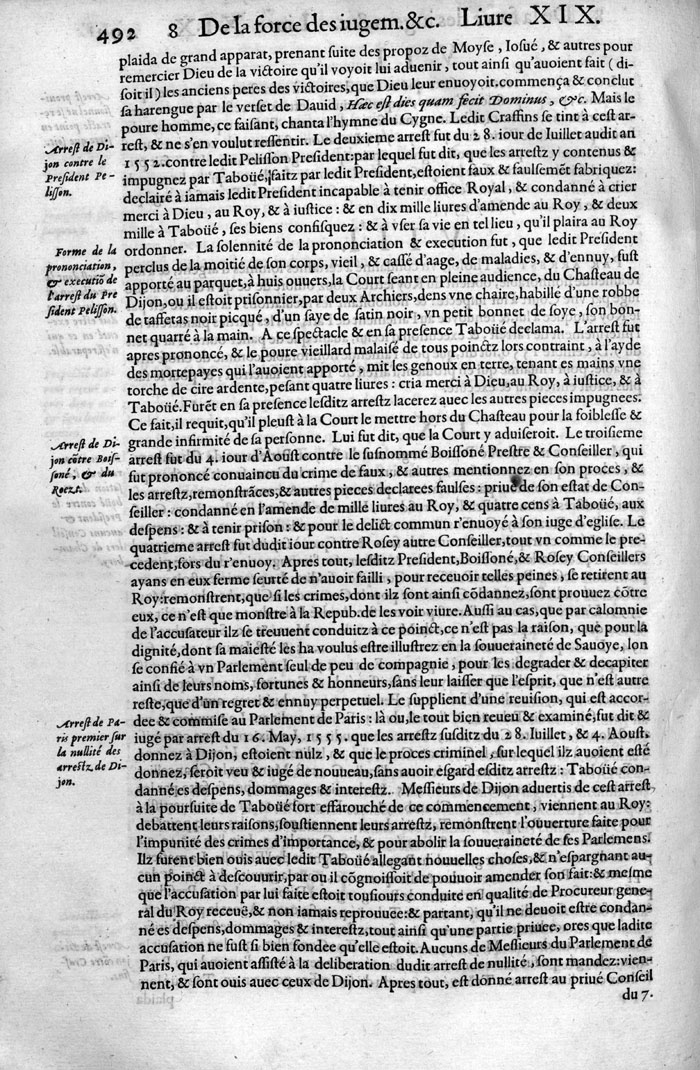 492 8 De la force des iugem. &c. Liure XIX.
plaida de grand apparat, prenant suite des propoz de Moyse, Iosué, & autres pour
remercier Dieu de la victoire qu'il voyoit lui aduenir, tout ainsi qu'auoient fait (di-
soit il) les anciens peres des victoires, que Dieu leur enuoyoit. commença & conclut
sa harengue par le verset de Dauid, Hæc est dies quam fecit Dominus, &c. Mais le
poure homme, ce faisant, chanta l'hymne du Cygne. Ledit Crassins se tint à cest ar-
Arrest de Di-
jon contre le
President Pe-
lisson.
rest, & ne s'en voulut ressentir. Le deuxieme arrest fut du 28. iour de Iuillet audit an
1552. contre ledit Pelisson President: par lequel fut dit, que les arrestz y contenus &
impugnez par Taboüé, faitz par ledit President, estoient faux & faulsemẽt fabriquez:
declairé à iamais ledit President incapable à tenir office Royal, & condanné à crier
merci à Dieu, au Roy, & à iustice: & en dix mille liures d'amende au Roy, & deux
mille à Taboüé, ses biens confisquez: & à vser sa vie en tel lieu, qu'il plaira au Roy
Forme de la
prononciation,
& executiõ de
l'arrest du Pre
sident Pelisson.
ordonner. La solennité de la prononciation & execution fut, que ledit President
perclus de la moitié de son corps, vieil, & cassé d'aage, de maladies, & d'ennuy, fust
apporté au parquet, à huis ouuers, la Court seant en pleine audience, du Chasteau de
Dijon, ou il estoit prisonnier, par deux Archiers, dens vne chaire, habillé d'une robbe
de taffetas noir picqué, d'un saye de satin noir, vn petit bonnet de soye, son bon-
net quarré à la main. A ce spectacle & en sa presence Taboüé declama. L'arrest fut
apres prononcé, & le poure vieillard malaisé de tous poinctz lors contraint, à l'ayde
des mortepayes qui l'auoient apporté, mit les genoux en terre, tenant es mains vne
torche de cire ardente, pesant quatre liures: cria merci à Dieu, au Roy, à iustice, & à
Taboüé. Furẽt en sa presence lesditz arrestz lacerez auec les autres pieces impugnees.
Ce fait, il requit, qu'il pleust à la Court le mettre hors du Chasteau pour la foiblesse &
Arrest de Di-
jon cõtre Bois-
soné, & du
Roezt.
grande infirmité de sa personne. Lui fut dit, que la Court y aduiseroit. Le troisieme
arrest fut du 4. iour d'Aoust contre le susnommé Boissoné Prestre & Conseiller, qui
fut prononcé conuaincu du crime de faux, & autres mentionnez en son proces, &
les arrestz, remonstrãces, & autres pieces declarees faulses: priué de son estat de Con-
seiller: condanné en l'amende de mille liures au Roy, & quatre cens à Taboüé, aux
despens: & à tenir prison: & pour le delict commun r'enuoyé à son iuge d'eglise. Le
quatrieme arrest fut dudit iour contre Rosey autre Conseiller, tout vn comme le pre-
cedent, fors du r'enuoy. Apres tout, lesditz President, Boissoné, & Rosey Conseillers
ayans en eux ferme seurté de n'auoir failli, pour receuoir telles peines, se retirent au
Roy: remonstrent, que si les crimes, dont ilz sont ainsi cõdannez, sont prouuez cõtre
eux, ce n'est que monstre à la Repub. de les voir viure. Aussi au cas, que par calomnie
de l'accusateur ilz se treuuent conduitz à ce poinct, ce n'est pas la raison, que pour la
dignité, dont sa maiesté les ha voulus estre illustrez en la souueraineté de Sauoye, lon
se confie à vn Parlement seul de peu de compagnie, pour les degrader & decapiter
ainsi de leurs noms, fortunes & honneurs, sans leur laisser que l'esprit, que n'est autre
reste, que d'un regret & ennuy perpetuel. Le supplient d'une reuision, qui est accor-
Arrest de Pa-
ris premier sur
la nullité des
arrestz de Di-
jon.
dee & commise au Parlement de Paris: là ou, le tout bien reueu & examiné, fut dit &
iugé par arrest du 16. May, 1555. que les arrestz susditz du 28. Iuillet, & 4. Aoust.
donnez à Dijon, estoient nulz, & que le proces criminel, sur lequel ilz auoient esté
donnez, seroit veu & iugé de nouueau, sans auoir esgard esditz arrestz: Taboüé con-
danné es despens, dommages & interestz. Messieurs de Dijon aduertis de cest arrest
à la poursuite de Taboüé fort effarouché de ce commencement, viennent au Roy:
debattent leurs raisons, soustiennent leurs arrestz, remonstrent l'ouuerture faite pour
l'impunité des crimes d'importance, & pour abolir la souueraineté de ses Parlemens.
Ilz furent bien ouis auec ledit Taboüé allegant nouuelles choses, & n'espargnant au-
cun poinct à descouurir, par ou il cõgnoissoit de pouuoir amender son fait: & mesme
que l'accusation par lui faite estoit tousiours conduite en qualité de Procureur gene-
ral du Roy receuë, & non iamais reprouuee: & partant, qu'il ne deuoit estre condan-
né es despens, dommages & interestz, tout ainsi qu'une partie priuee, ores que ladite
accusation ne fust si bien fondee qu'elle estoit. Aucuns de Messieurs du Parlement de
Paris, qui auoient assisté à la deliberation dudit arrest de nullité, sont mandez: vien-
nent, & sont ouis auec ceux de Dijon. Apres tout, est donné arrest au priué Conseil
du 7.